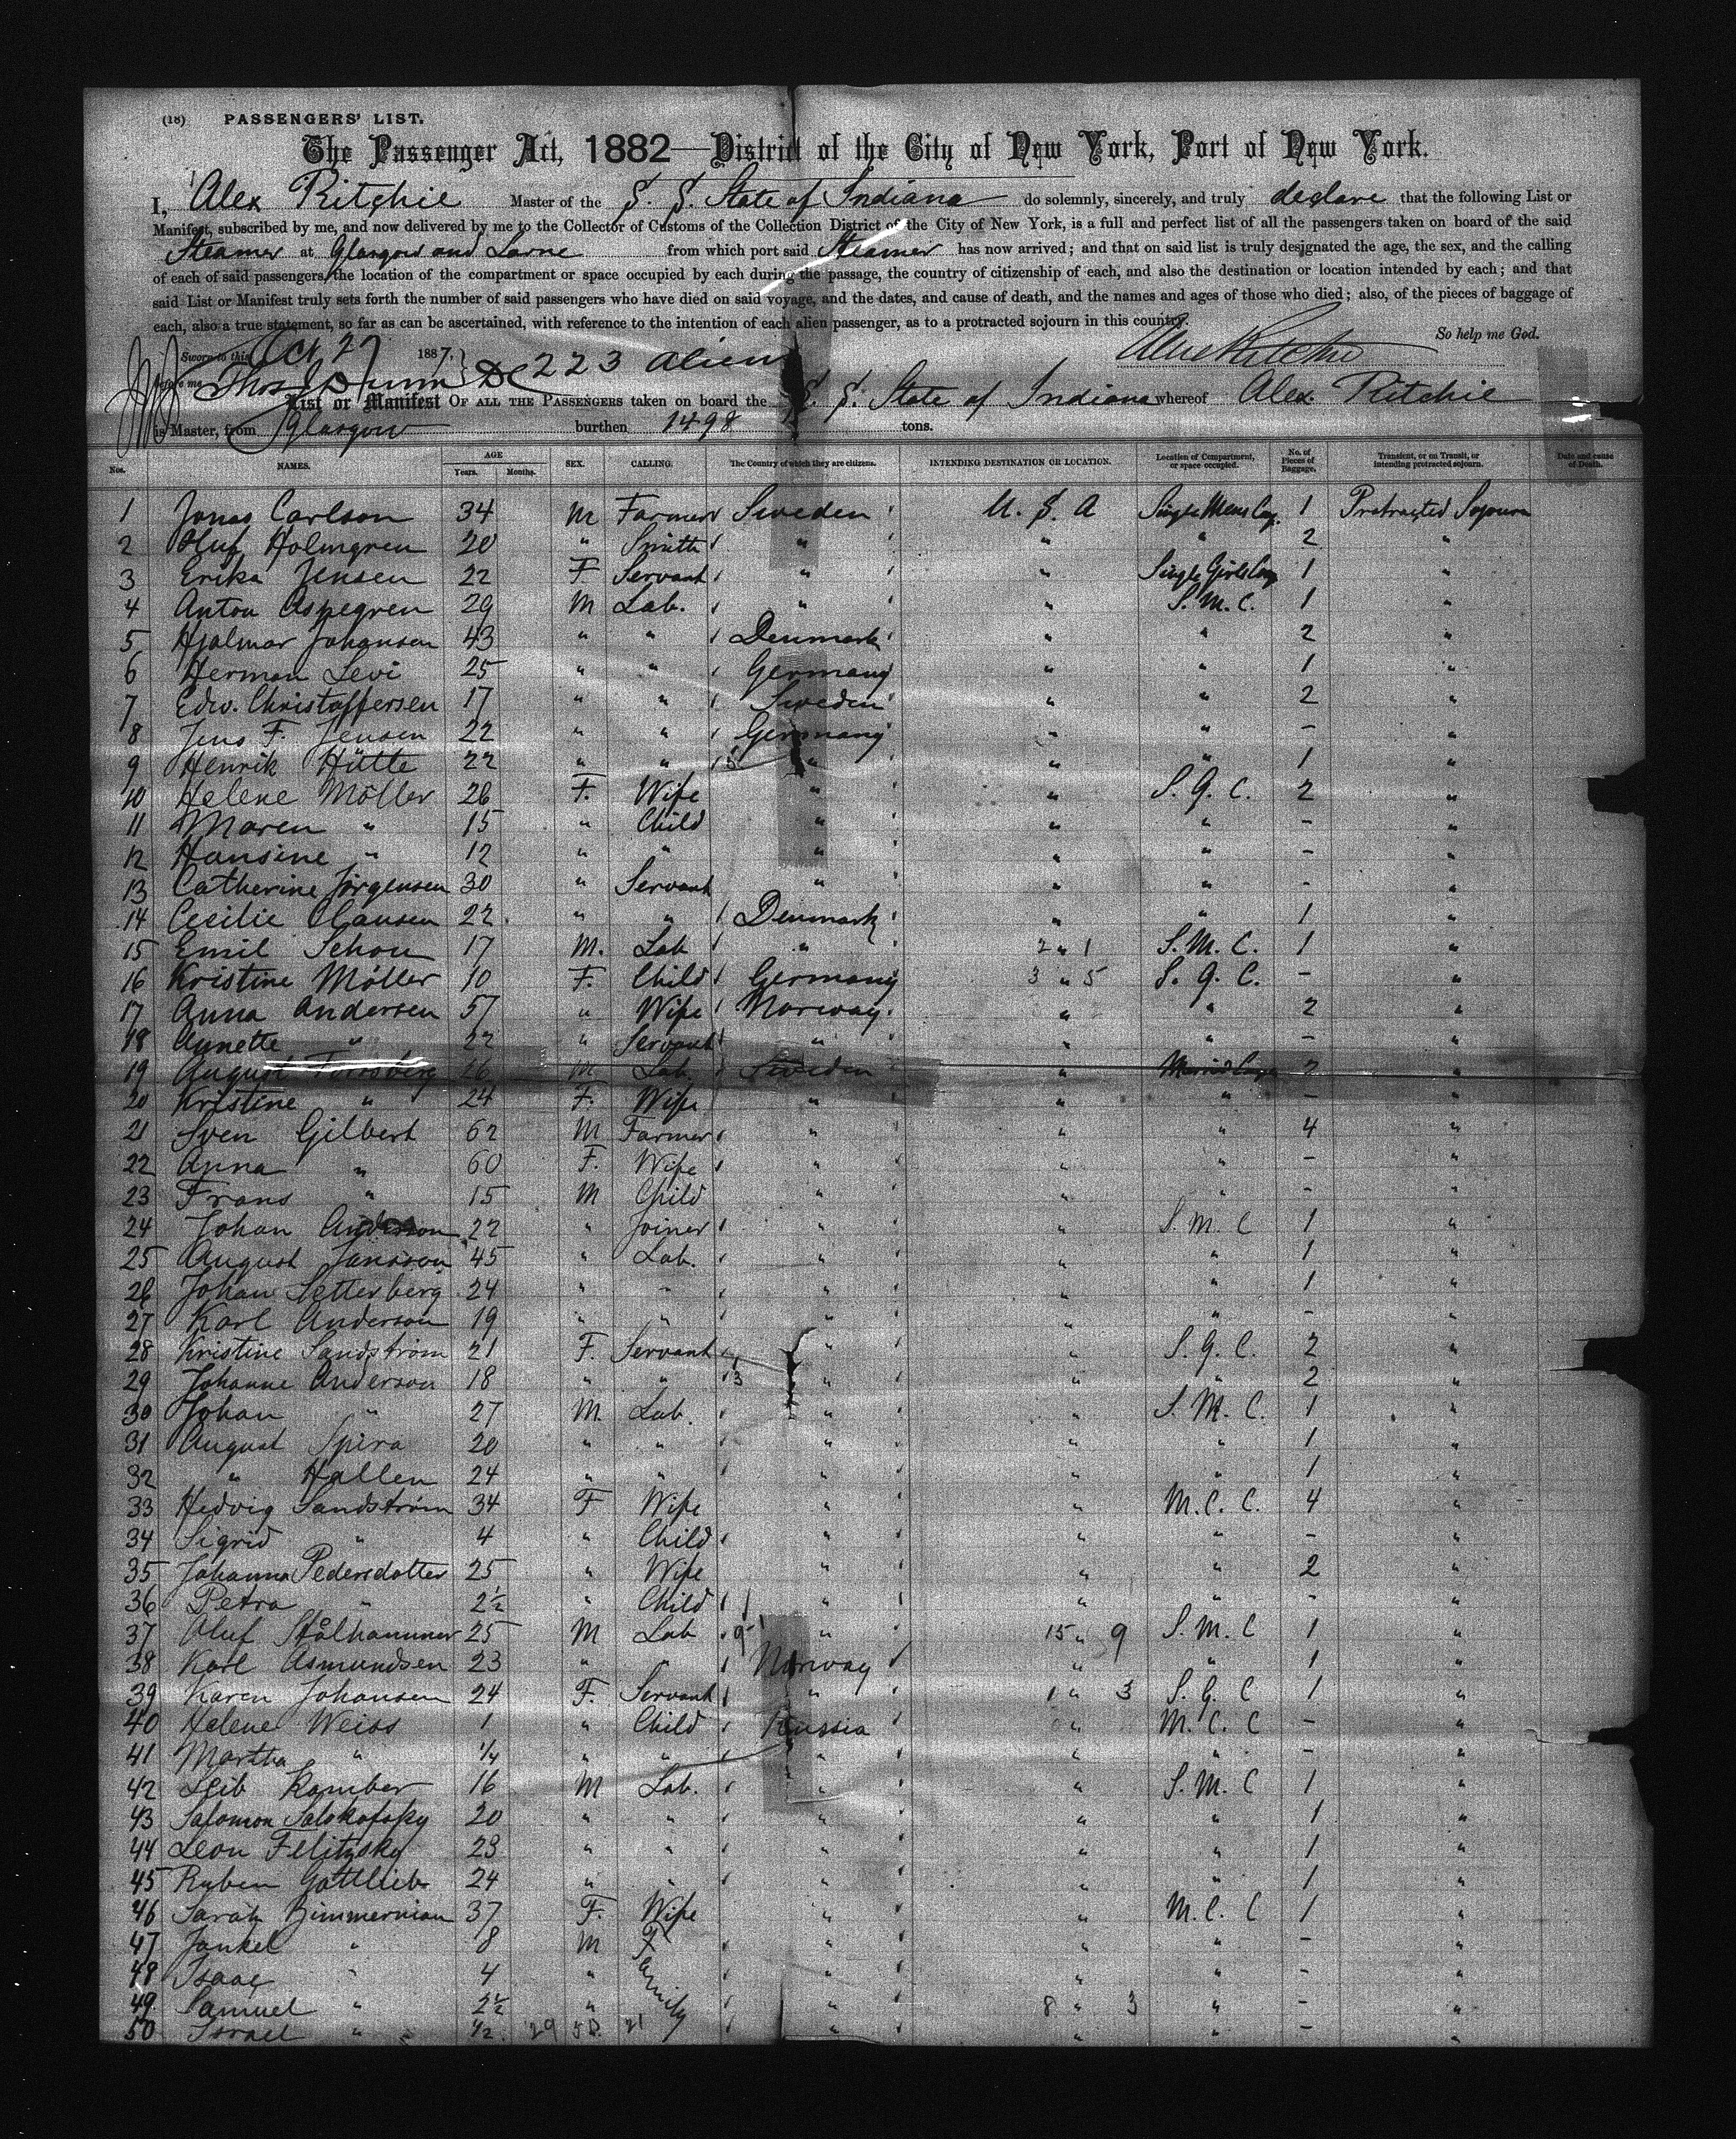 (18) PASSENGERS' LIST.
The Passenger Act, 1882—District of the City of New York, Port of New York.
I, Alex Ritchie Master of the S. S. State of Indiana do solemnly, sincerely, and truly declare that the following List or
Manifest, subscribed by me, and now delivered by me to the Collector of Customs of the Collection District of the City of New York, is a full and perfect list of all the passengers taken on board of the said
Steamer at Glasgow and Larne from which port said Steamer has now arrived; and that on said list is truly designated the age, the sex, and the calling
of each of said passengers, the location of the compartment or space occupied by each during the passage, the country of citizenship of each, and also the destination or location intended by each; and that
said List or Manifest truly sets forth the number of said passengers who have died on said voyage, and the dates, and cause of death, and the names and ages of those who died; also, of the pieces of baggage of
each, also a true statement, so far as can be ascertained, with reference to the intention of each alien passenger, as to a protracted sojourn in this country. So help me God.
Sworn to this Oct 27 1887. Alex Ritchie
before me Thos J Dunn DC 223 alien
List or Manifest OF ALL THE PASSENGERS taken on board the S. S. State of Indiana whereof Alex. Ritchie
is Master, from Glasgow burthen 1498 tons.
Nos. NAMES. AGE Years. Months. SEX. CALLING. The Country of which they are citizens. INTENDING DESTINATION OR LOCATION. Location of Compartment, or space occupied. No. of Pieces of Baggage. Transient, or on Transit, or intending protracted sojourn. Date and cause of Death.
1 Jonas Carlson 34 M Farmer Sweden U. S. A Single Mens Cap. 1 Protracted Sojourn
2 Oluf Holmgren 20 " Smith " " " 2 "
3 Erika Jensen 22 F Servant " " Single Girls Cap 1 "
4 Anton Aspegren 29 M Lab. " " S. M. C. 1 "
5 Hjalmar Johansen 43 " " Denmark " " 2 "
6 Herman Levi 25 " " Germany " " 1 "
7 Edw. Christoffersen 17 " " Sweden " " 2 "
8 Jens F. Jensen 22 " " Germany " " - "
9 Henrik Hütte 22 " " " " " 1 "
10 Helene Möller 26 F. Wife " " S. G. C. 2 "
11 Maren " 15 " Child " " " - "
12 Hansine " 12 " " " " " - "
13 Catherine Jörgensen 30 " Servant " " " - "
14 Cecilie Clausen 22 " " Denmark " " 1 "
15 Emil Schou 17 M. Lab " 2 " 1 S. M. C. 1 "
16 Kristine Möller 10 F. Child Germany 3 " 5 S. G. C. - "
17 Anna Andersen 57 " Wife Norway " " 2 "
18 Annette " 22 " Servant " " " - "
19 August 26 M Lab Sweden " Married Cap 2 "
20 Kristine " 24 F. Wife " " " - "
21 Sven Gilbert 62 M Farmer " " " 4 "
22 Anna " 60 F. Wife " " " - "
23 Frans " 15 M Child " " " - "
24 Johan Anderson 22 " Joiner " " S. M. C 1 "
25 August Jansson 45 " Lab. " " " 1 "
26 Johan Setterberg 24 " " " " " 1 "
27 Karl Anderson 19 " " " " " - "
28 Kristine Sandström 21 F. Servant " " S. G. C. 2 "
29 Johanne Anderson 18 " " 3 " " " 2 "
30 Johan " 27 M. Lab. " " S. M. C. 1 "
31 August Spira 20 " " " " " 1 "
32 " Hallen 24 " " " " " 1 "
33 Hedvig Sandström 34 F Wife " " M. C. C. 4 "
34 Sigrid " 4 " Child " " " - "
35 Johanna Pedersdotter 25 " Wife " " " 2 "
36 Petra " 2½ " Child " " " - "
37 Oluf Stålhammer 25 M Lab 9 " 15 " 9 S. M. C 1 "
38 Karl Asmundsen 23 " " Norway " " 1 "
39 Karen Johansen 24 F. Servant " 1 " 3 S. G. C 1 "
40 Helene Weiss 1 " Child Russia " M. C. C - "
41 Martha " ¼ " " " " " - "
42 Leib Kamber 16 M Lab. " " S. M. C 1 "
43 Salomon Salskofsky 20 " " " " " 1 "
44 Leon Felitzsky 23 " " " " " 1 "
45 Ruben Gottlieb 24 " " " " " 1 "
46 Sarah Zimmerman 37 F. Wife " " M. C. C 1 "
47 Jankel " 8 M Family " " " - "
48 Isaac " 4 " " " " - "
49 Samuel " 2½ " " 8 " 3 " - "
50 Israel " ½ 29 50 21 " " " - "